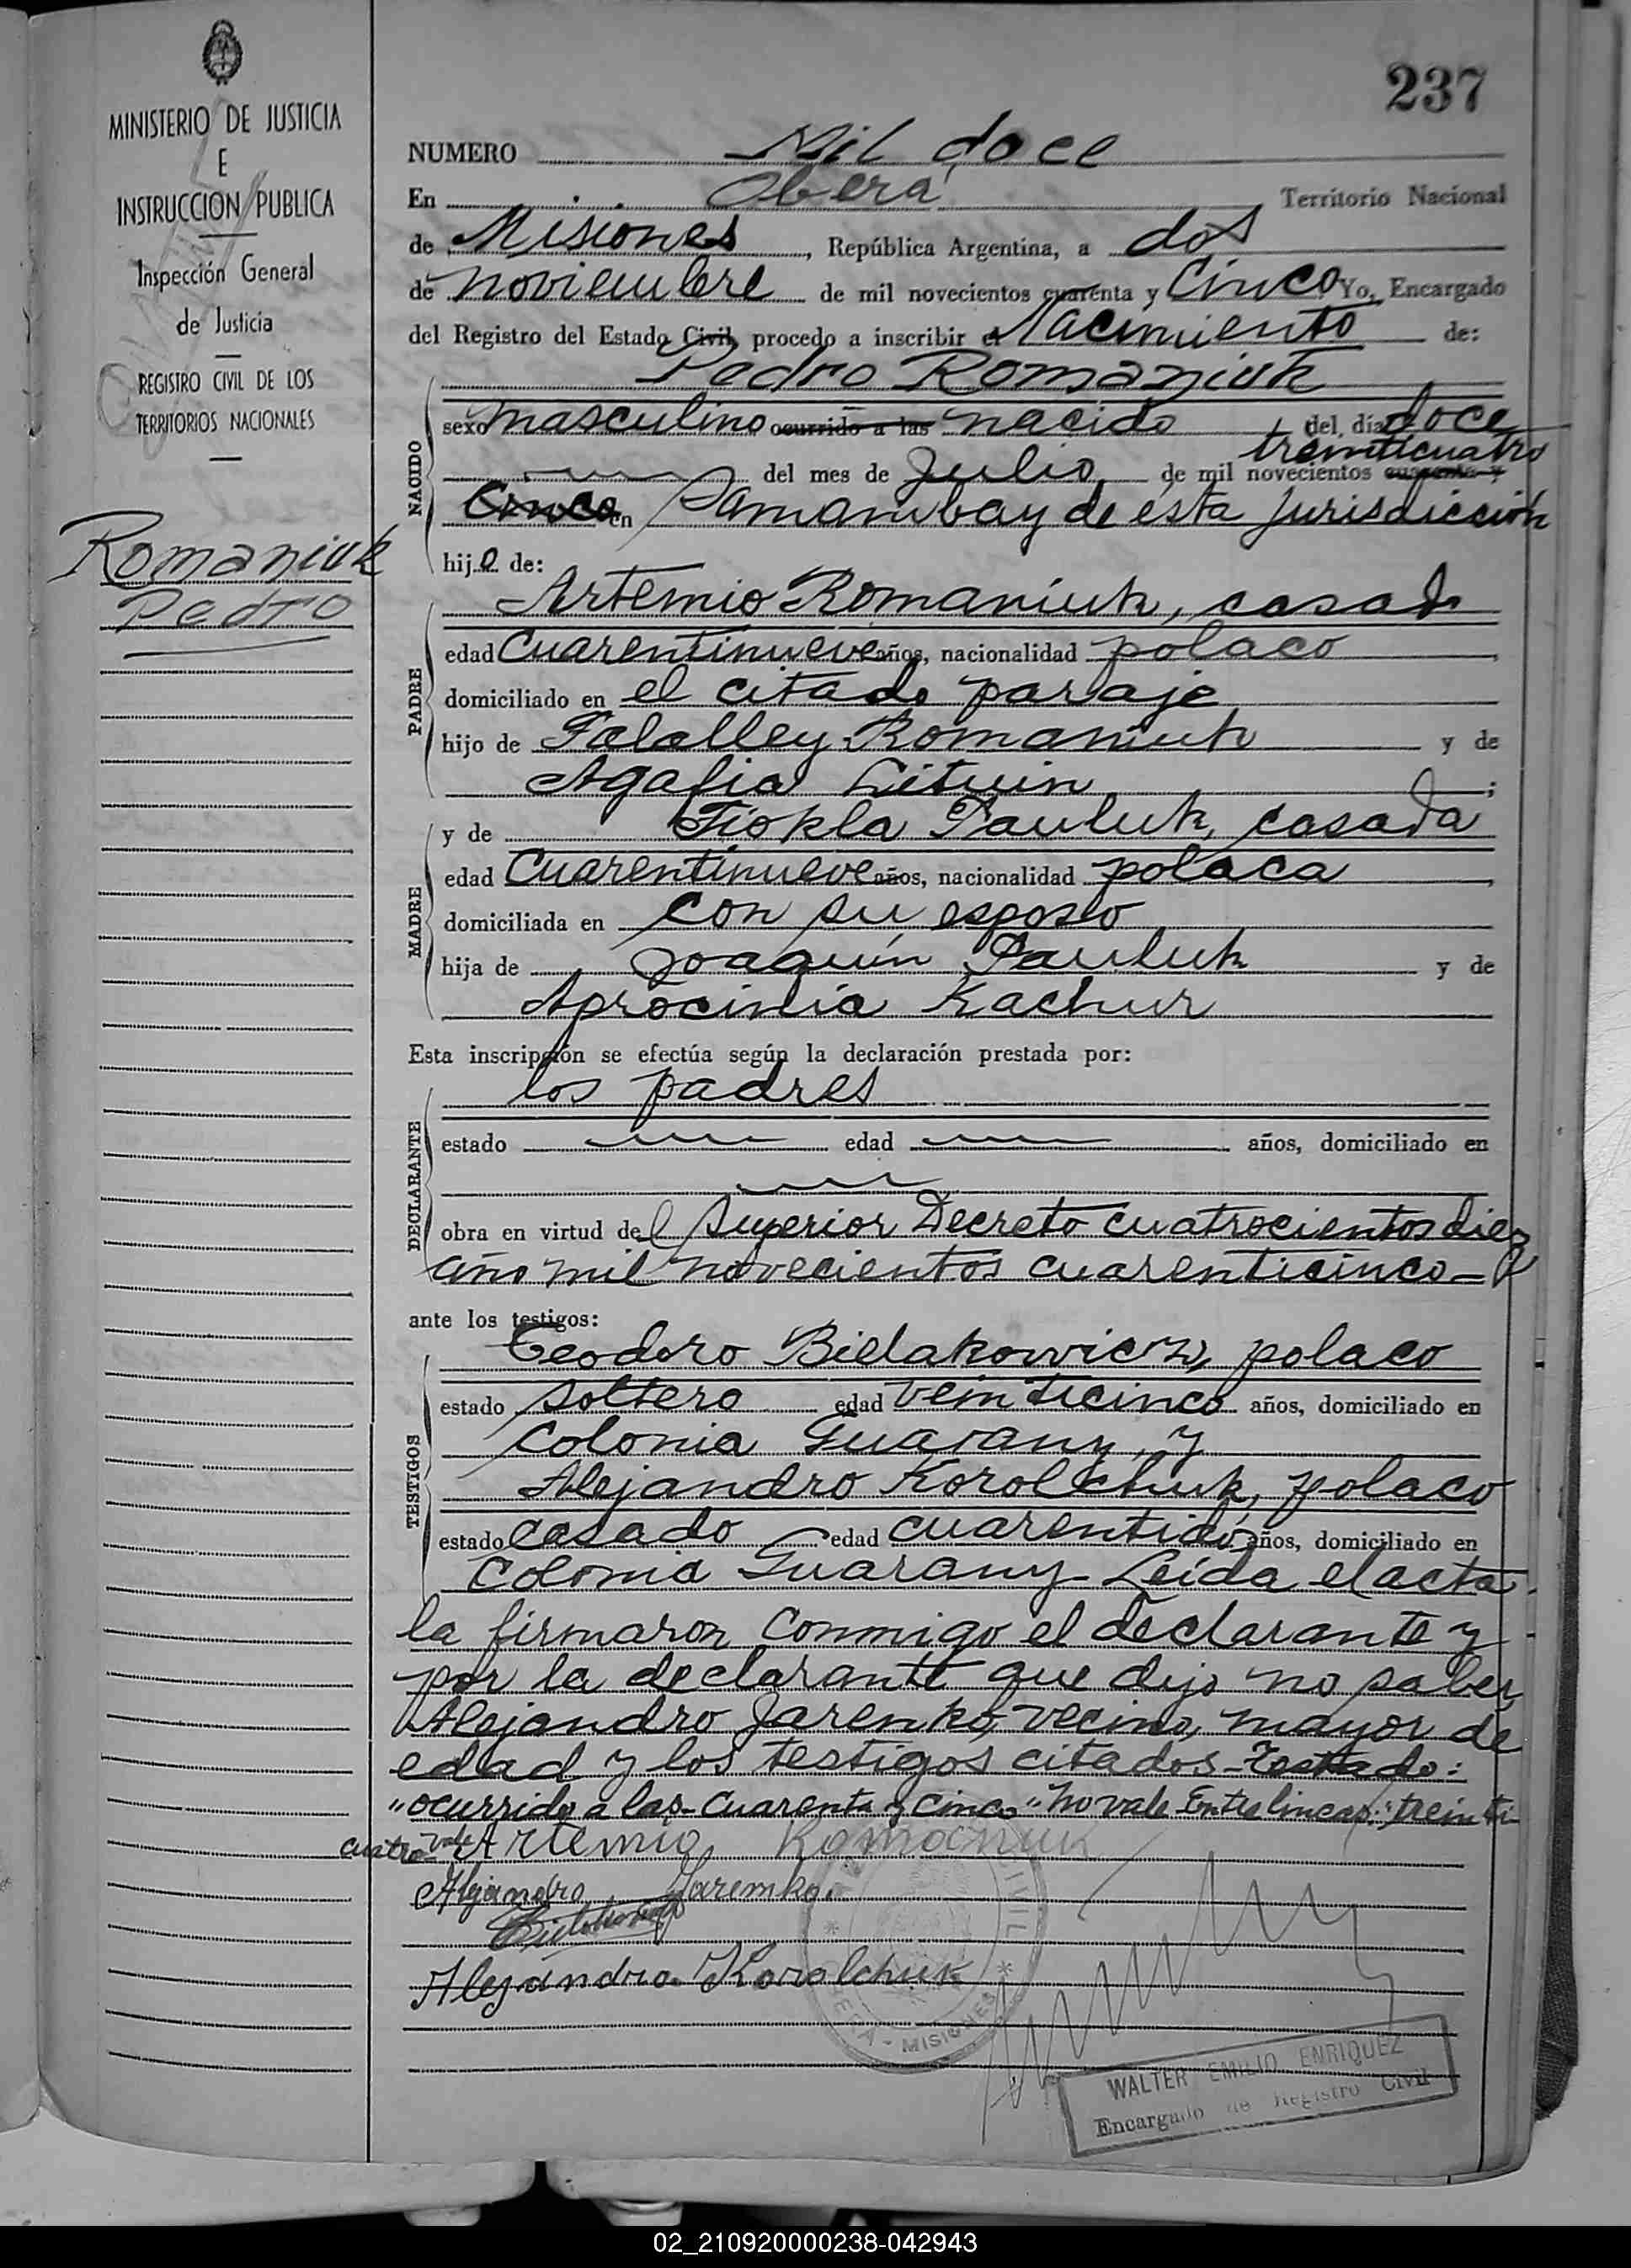 MINISTERIO DE JUSTICIA
E
INSTRUCCION PUBLICA
Inspección General
de Justicia
REGISTRO CIVIL DE LOS
TERRITORIOS NACIONALES
Romaniuk
Pedro
237
NUMERO Mil doce
En Oberá Territorio Nacional
de Misiones, República Argentina, a dos
de noviembre de mil novecientos cuarenta y Cinco Yo, Encargado
del Registro del Estado Civil, procedo a inscribir el Nacimiento de:
Pedro Romaniuk
NACIDO
sexo masculino ocurrido a las nacido del día doce
treinticuatro
del mes de Julio de mil novecientos cuarenta y
Cinco en Samambay de esta jurisdicción
hijo de:
PADRE
Artemio Romaniuk, casado
edad Cuarentinueve años, nacionalidad polaco
domiciliado en el citado paraje
hijo de Falalley Romaniuk y de
Agafia Lituin;
MADRE
y de Fiokla Pauluk, casada
edad Cuarentinueve años, nacionalidad polaca
domiciliada en con su esposo
hija de Joaquín Pauluk y de
Aprocinia Kachur
Esta inscripción se efectúa según la declaración prestada por:
DECLARANTE
los padres
estado edad años, domiciliado en
obra en virtud del Superior Decreto cuatrocientos diez
año mil novecientos cuarenticinco
ante los testigos:
TESTIGOS
Teodoro Bielakowicz, polaco
estado soltero edad veinticinco años, domiciliado en
Colonia Guarany y
Alejandro Korolchuk, polaco
estado casado edad cuarentidós años, domiciliado en
Colonia Guarany - Leída el acta
la firmaron conmigo el declarante y
por la declarante que dijo no saber
Alejandro Jarenko, vecino, mayor de
edad y los testigos citados - Testado:
"ocurrido a las - cuarenta y cinco" no vale Entre lineas: "treinti-
cuatro" vale
Artemio Romaniuk
Alejandro Jaremko.
Alejandro Korolchuk
CIVIL
OBERA - MISIONES
WALTER EMILIO ENRIQUEZ
Encargado de Registro Civil
02_210920000238-042943